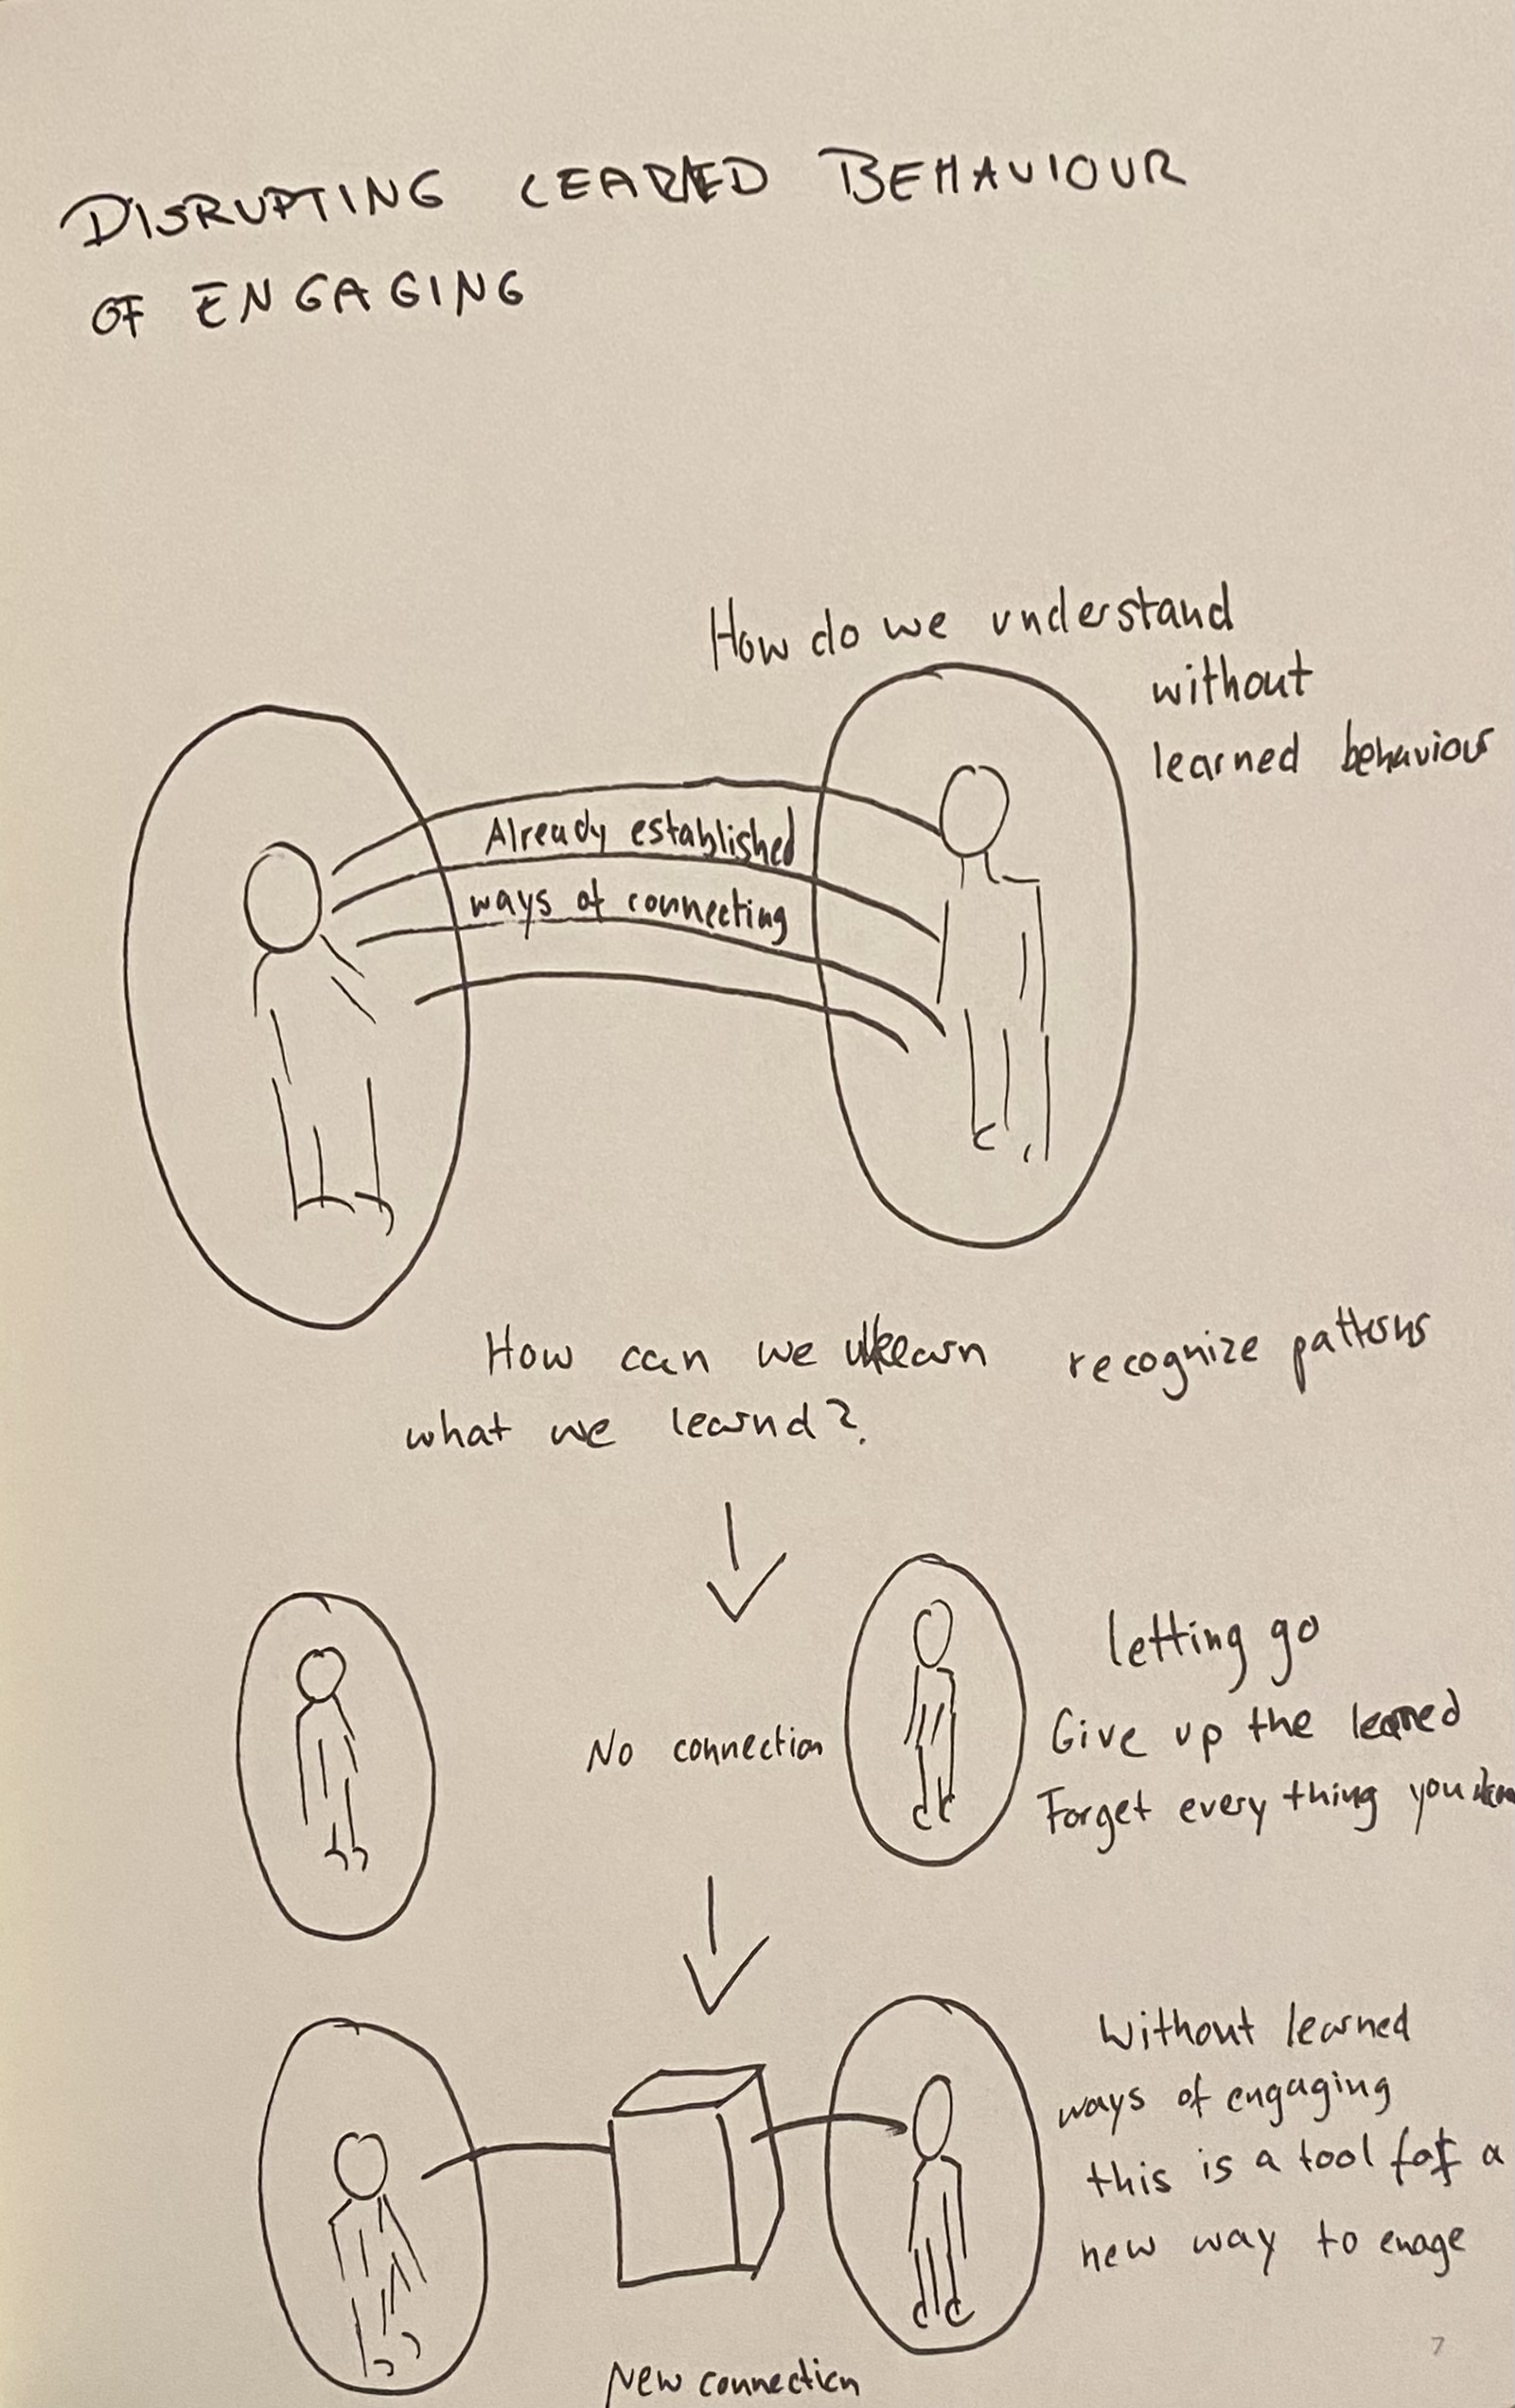 DISRUPTING LEARNED BEHAVIOUR
OF ENGAGING
How do we understand
without
learned behaviour
Already established
ways of connecting
How can we unlearn recognize patterns
what we learnd?
letting go
No connection
Give up the learned
Forget every thing you
Without learned
ways of engaging
this is a tool for a
new way to enage
New connection
7